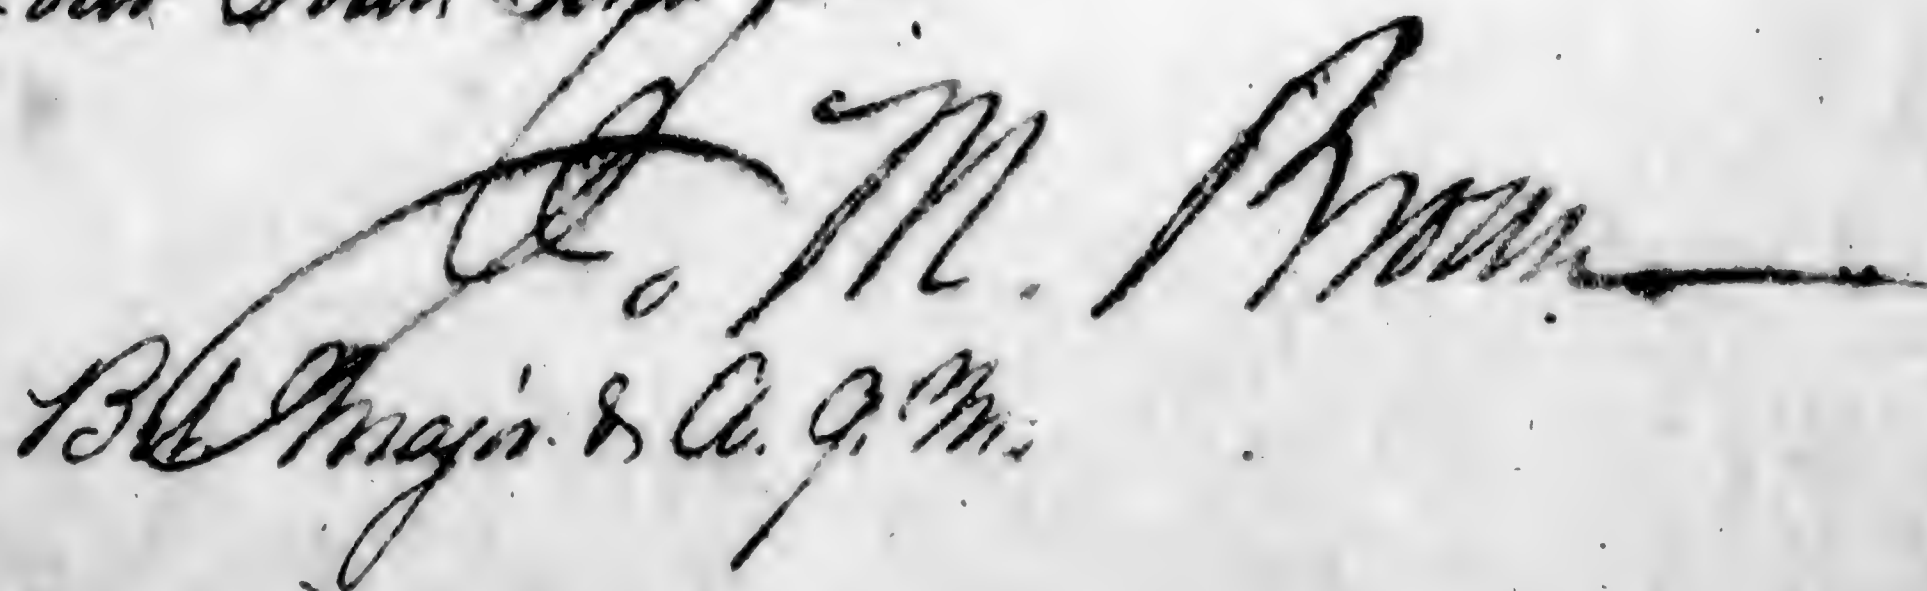 M. Brown
Bt Major & A. Q. M.